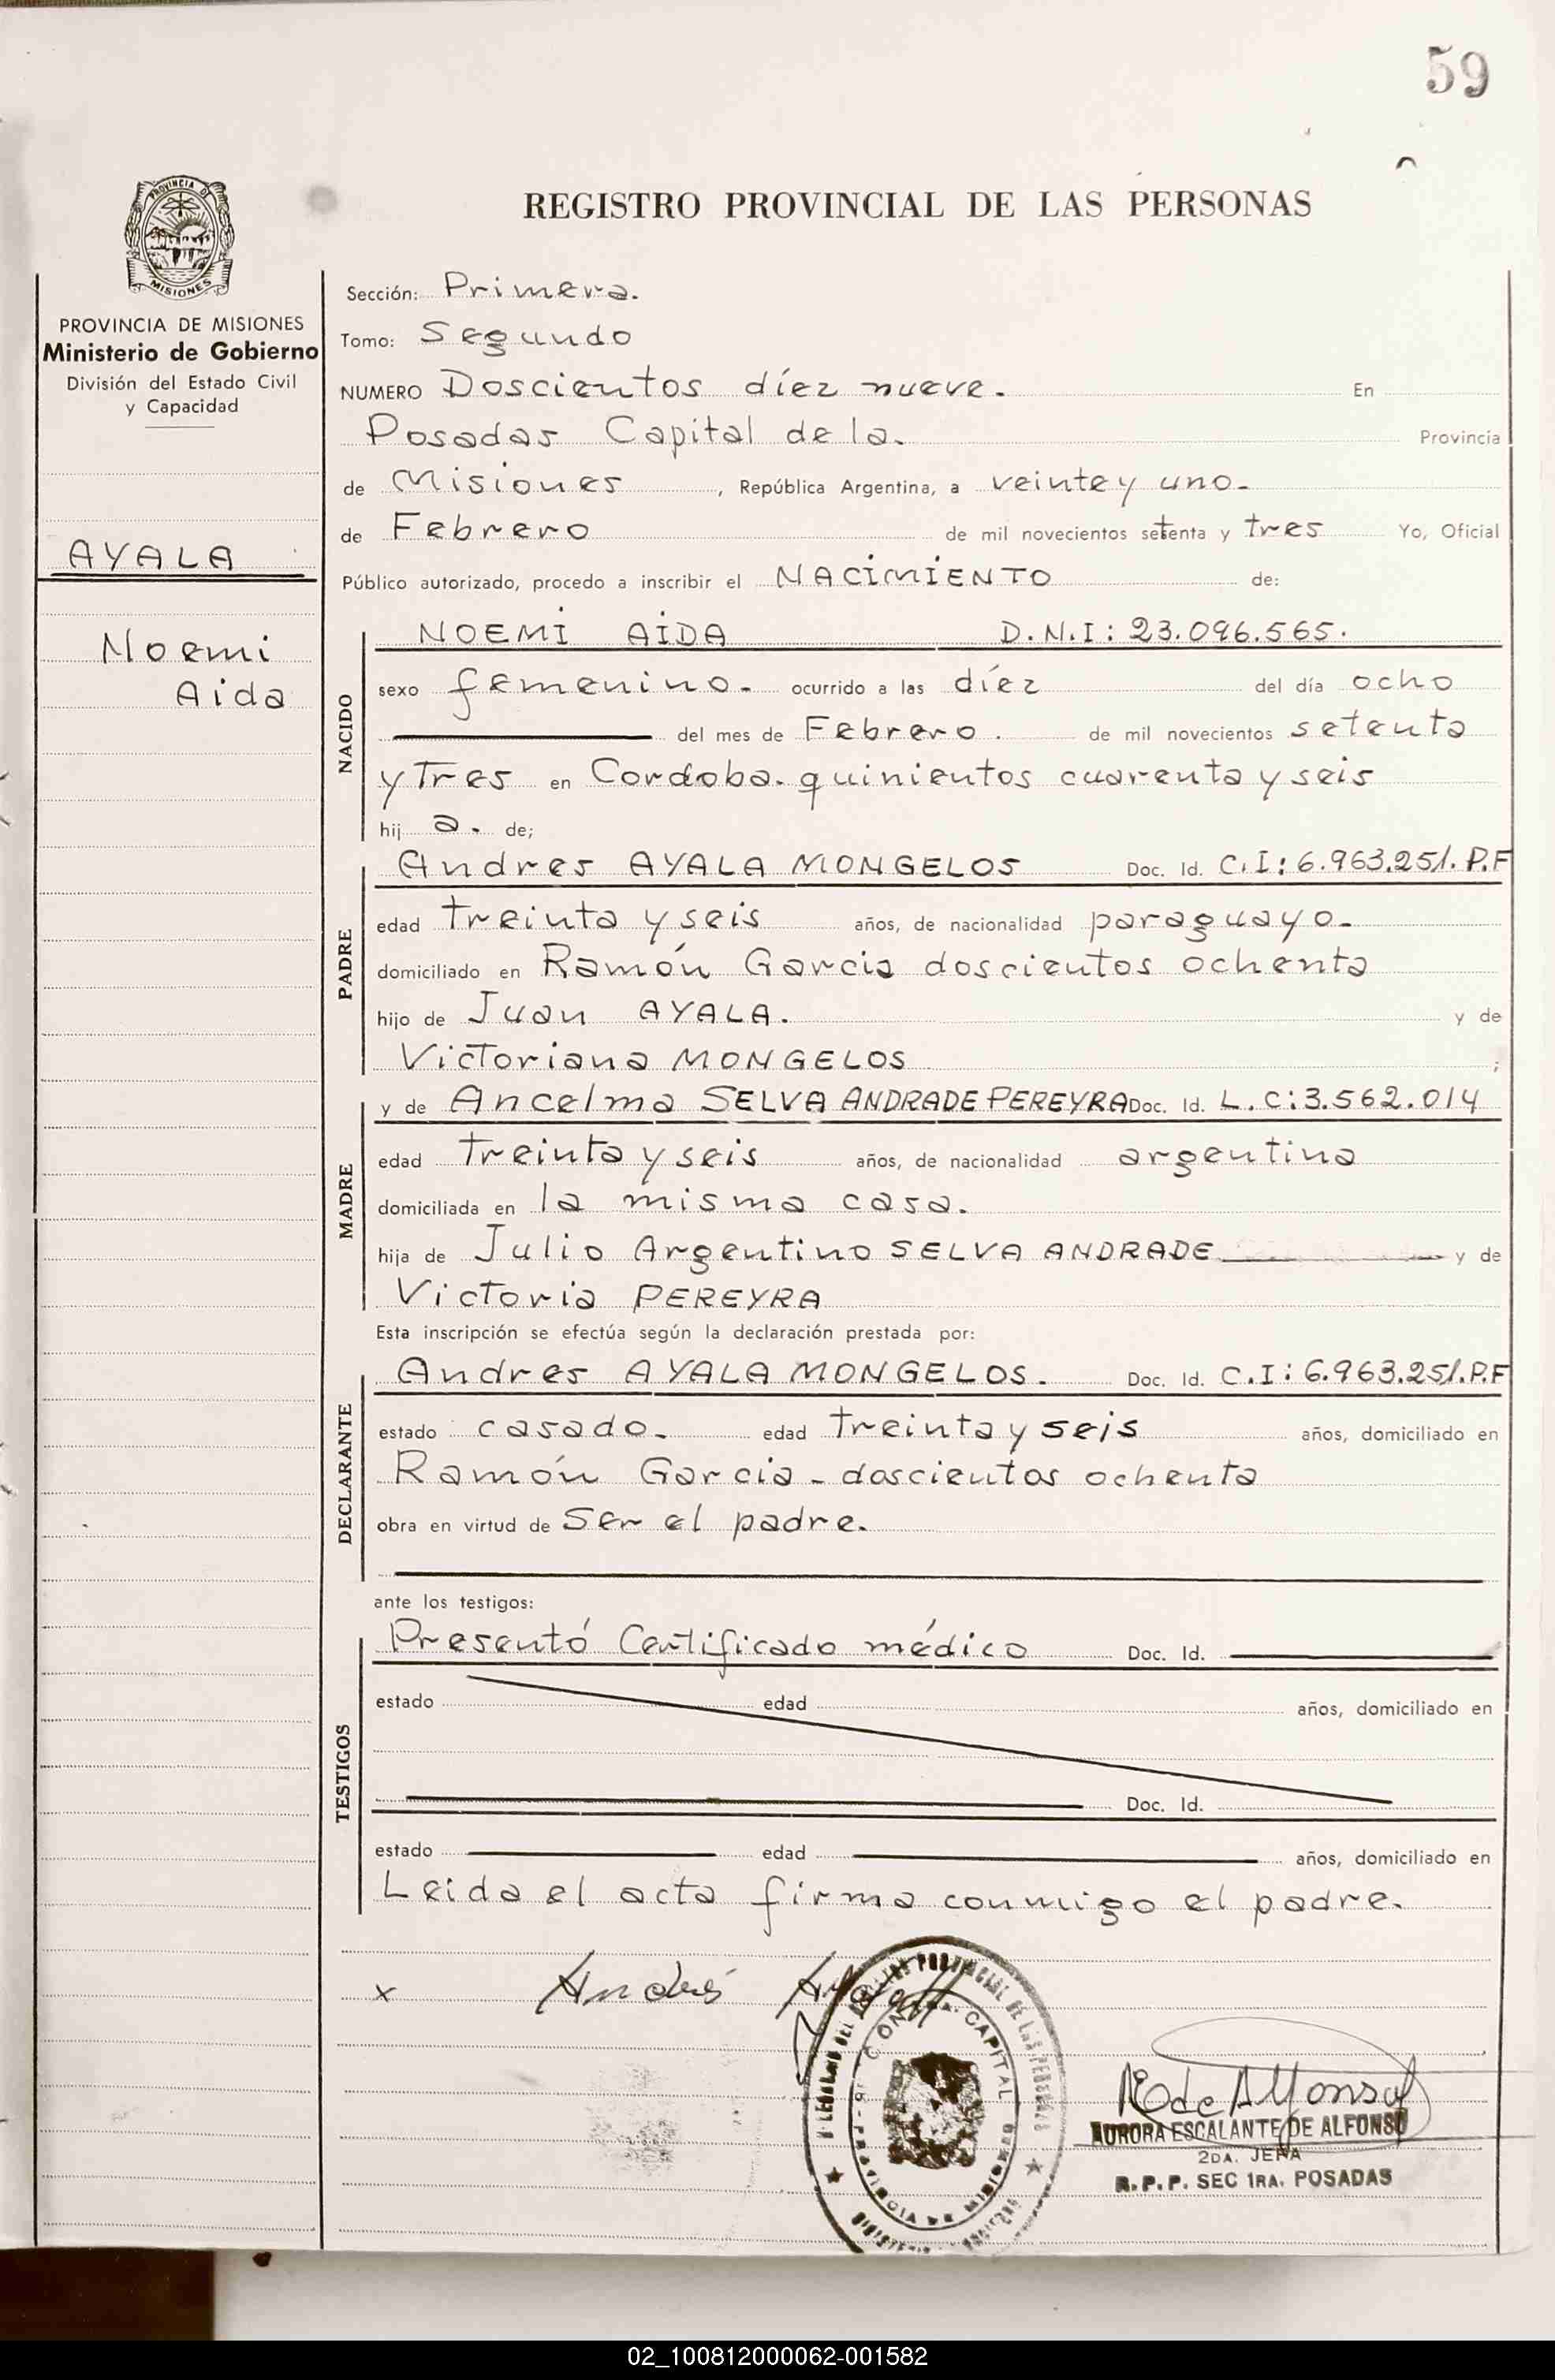 59
REGISTRO PROVINCIAL DE LAS PERSONAS
PROVINCIA DE MISIONES
PROVINCIA DE MISIONES
Ministerio de Gobierno
División del Estado Civil
y Capacidad
AYALA
Noemi
Aida
Sección: Primera.
Tomo: Segundo
NUMERO Doscientos díez nueve. En
Posadas Capital de la. Provincia
de Misiones, República Argentina, a veinte y uno.
de Febrero de mil novecientos setenta y tres Yo, Oficial
Público autorizado, procedo a inscribir el NACIMIENTO de:
NACIDO
NOEMI AIDA D.N.I: 23.096.565.
sexo femenino. ocurrido a las díez del día ocho
del mes de Febrero. de mil novecientos setenta
y Tres en Cordoba. quinientos cuarenta y seis
hij a. de;
PADRE
Andres AYALA MONGELOS Doc. Id. C.I: 6.963.251. P.F
edad treinta y seis años, de nacionalidad paraguayo.
domiciliado en Ramón Garcia doscientos ochenta
hijo de Juan AYALA. y de
Victoriana MONGELOS ;
MADRE
y de Ancelma SELVA ANDRADE PEREYRA Doc. Id. L.C: 3.562.014
edad treinta y seis años, de nacionalidad argentina
domiciliada en la misma casa.
hija de Julio Argentino SELVA ANDRADE y de
Victoria PEREYRA
Esta inscripción se efectúa según la declaración prestada por:
DECLARANTE
Andres AYALA MONGELOS. Doc. Id. C.I: 6.963.251. P.F
estado casado. edad treinta y seis años, domiciliado en
Ramón Garcia - doscientos ochenta
obra en virtud de Ser el padre.
ante los testigos:
TESTIGOS
Presentó Certificado médico Doc. Id.
estado edad años, domiciliado en
Doc. Id.
estado edad años, domiciliado en
Leida el acta firma conmigo el padre.
x Andrés
CAPITAL
PROVINCIA DE MISIONES
AURORA ESCALANTE DE ALFONSO
2DA. JEFA
R.P.P. SEC 1RA. POSADAS
02_100812000062-001582